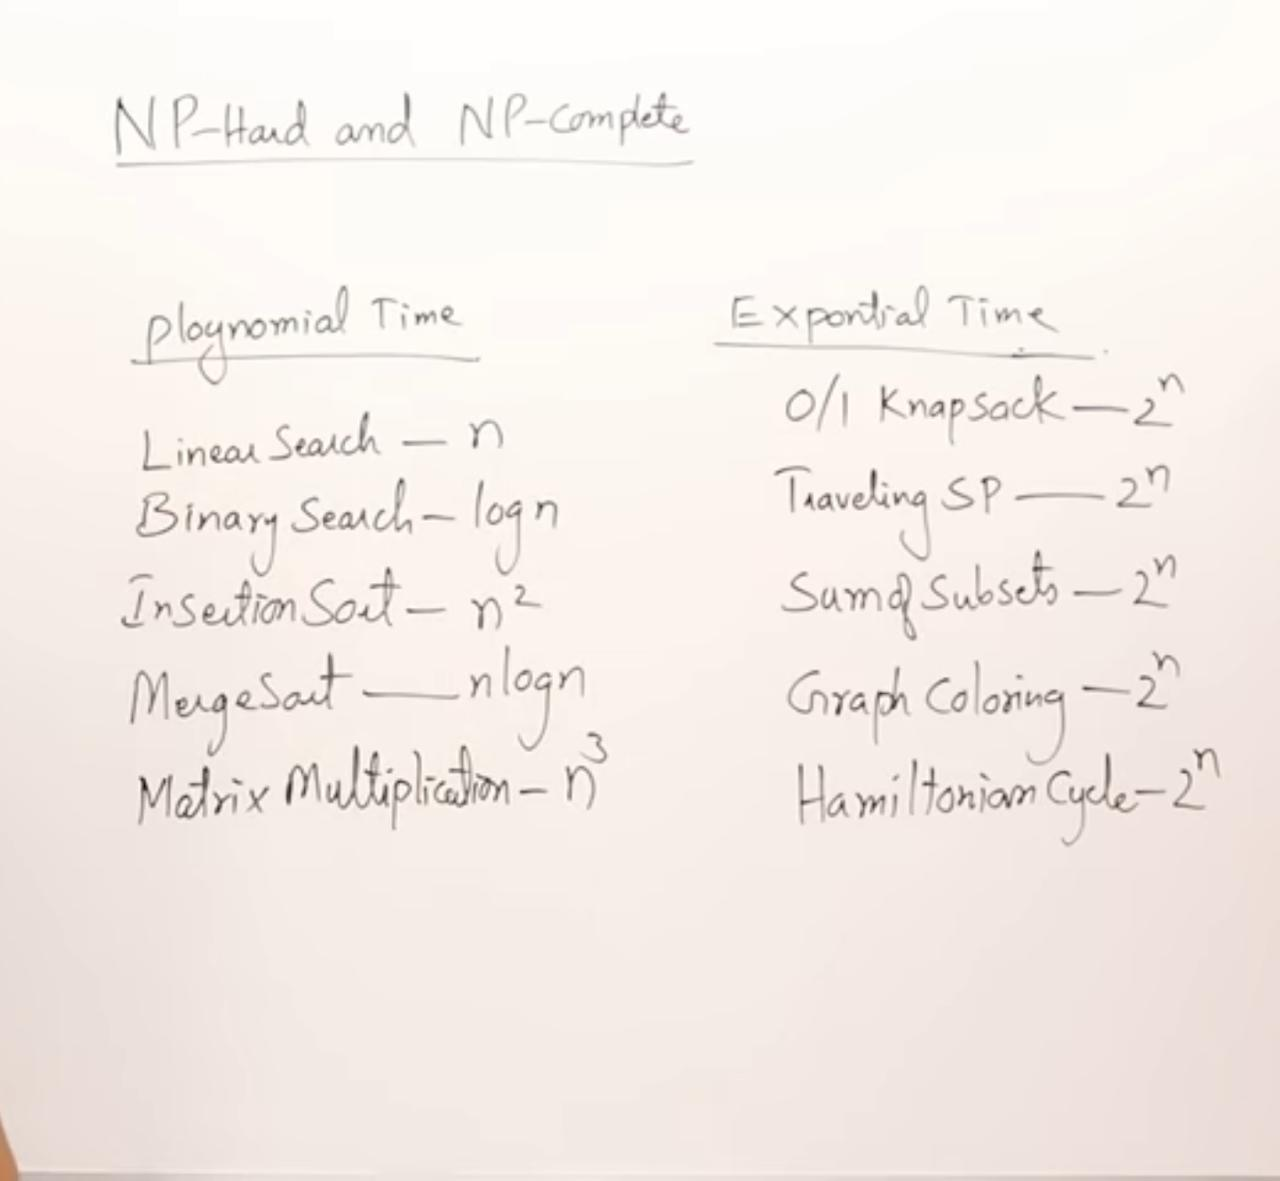 NP-Hard and NP-Complete
Ploynomial Time
Linear Search — n
Binary Search — log n
Insertion Sort — n²
MergeSort — nlogn
Matrix Multiplication — n³
Expontial Time
0/1 Knapsack — 2ⁿ
Traveling SP — 2ⁿ
Sum of Subsets — 2ⁿ
Graph Coloring — 2ⁿ
Hamiltonian Cycle — 2ⁿ